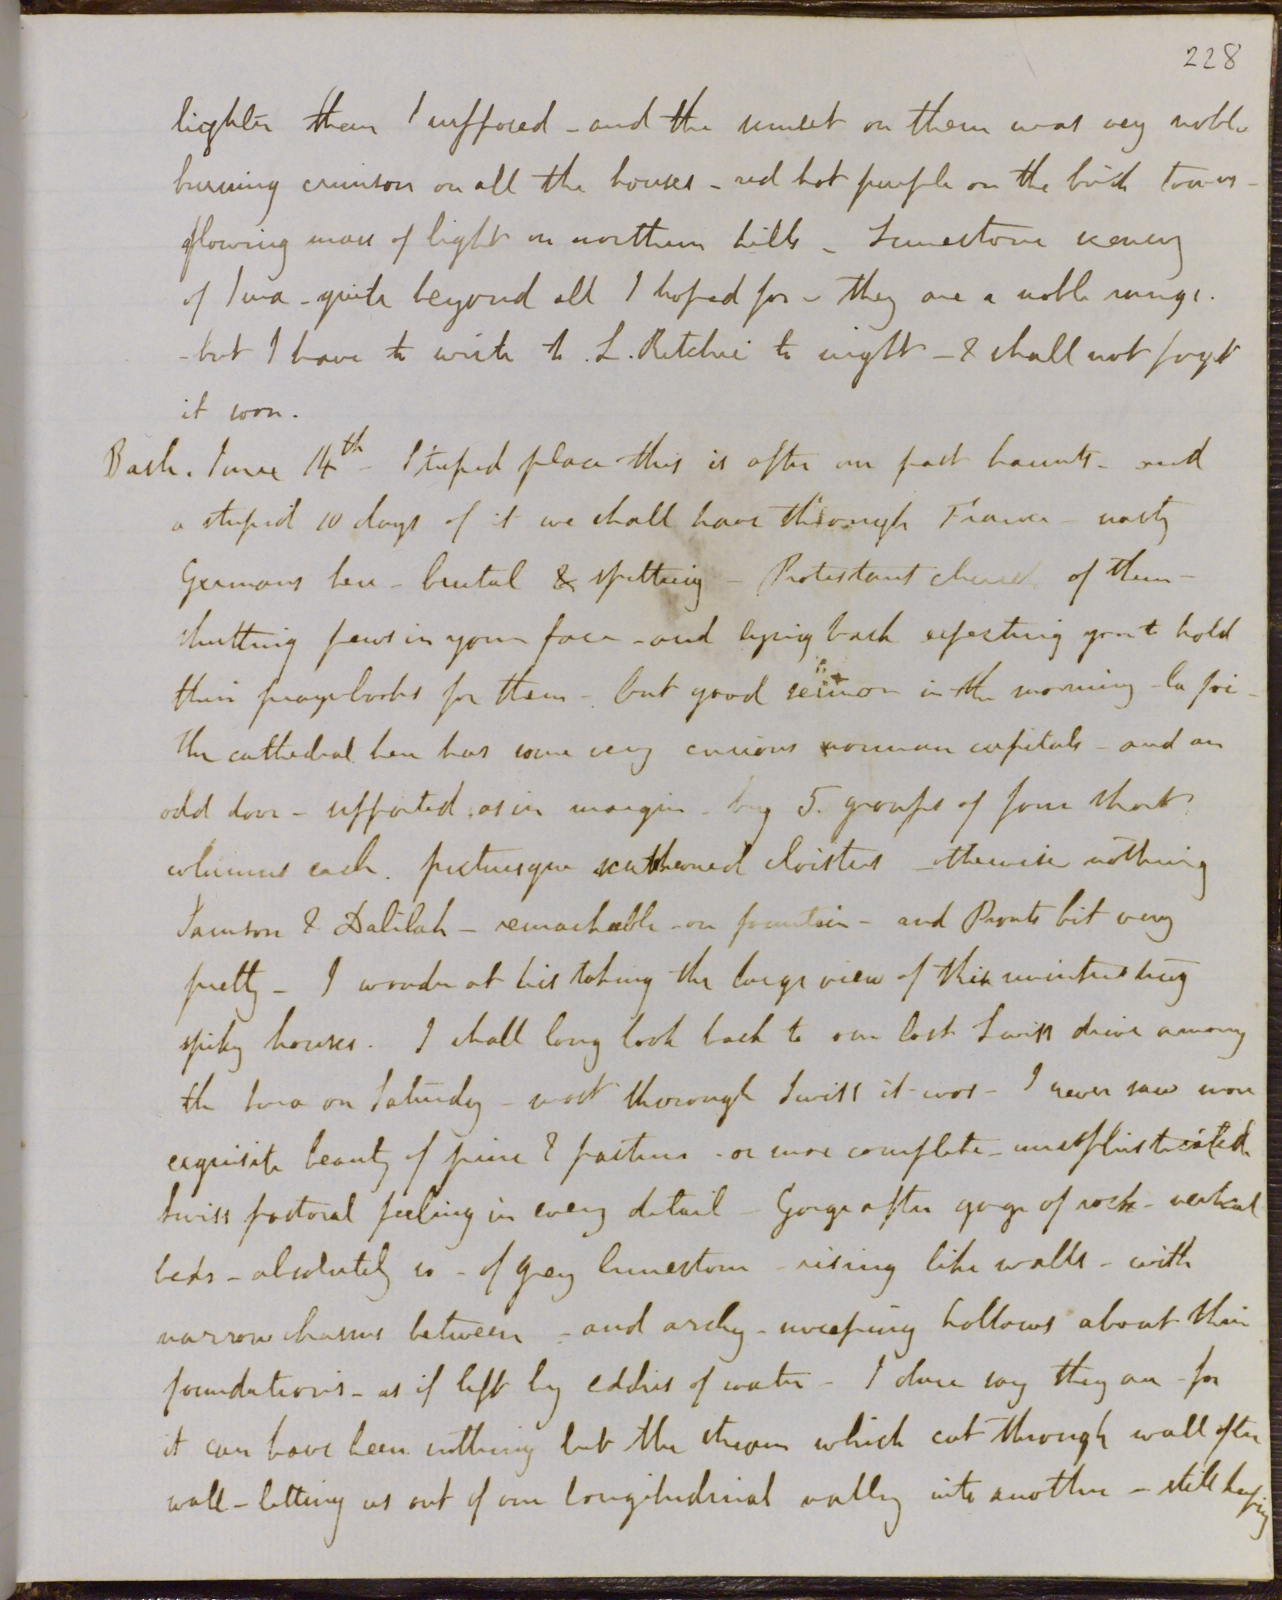 228
lighter than I supposed - and the sunset on them was very noble
burning crimson on all the houses - red hot purple on the brick towers -
glowing mass of light on northern hills - Limestone scenery
of Jura - quite beyond all I hoped for - they are a noble range.
- but I have to write to L. Ritchie to night - & shall not forget
it soon.
Basle. June 14th - Stupid place this is after our past haunts - and
a stupid 10 days of it we shall have through France - nasty
Germans here - brutal & spitting - Protestant church of them -
shutting pews in your face - and lying back expecting you to hold
their prayerbooks for them - but good sermon in the morning - la foi -
The cathedral here has some very curious norman capitals - and an
odd door - supported, as in margin - by 5. groups of four short
columns each. picturesque cloisters - otherwise nothing
Samson & Dalilah - remarkable - on fountain - and Prouts bit very
pretty - I wonder at his taking the large view of this uninteresting
spiky houses. I shall long look back to our last Swiss drive among
the Jura on Saturday - most thorough Swiss it was - I never saw more
exquisite beauty of pine & pasture - or more complete - unsophisticated
Swiss pastoral feeling in every detail - Gorge after gorge of rock - vertical
beds - absolutely so - of grey limestone - rising like walls - with
narrow chasms between - and archy - sweeping hollows about their
foundations - as if left by eddies of water - I dare say they are - for
it can have been nothing but the stream which cut through wall after
wall - letting us out of one longitudinal valley into another - still keeping